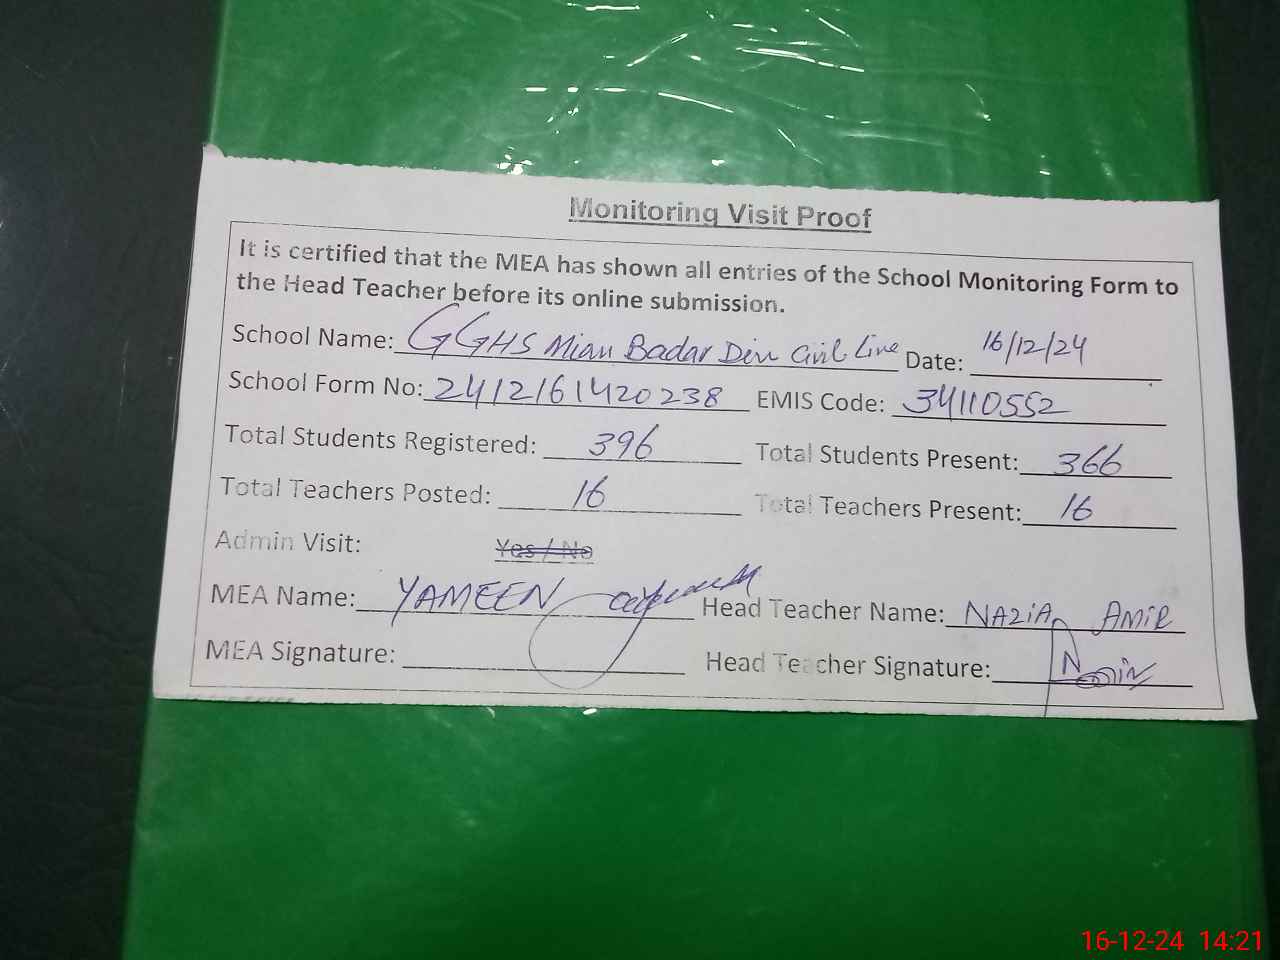 Monitoring Visit Proof
It is certified that the MEA has shown all entries of the School Monitoring Form to
the Head Teacher before its online submission.
School Name: GGHS Mian Badar Din Civil Line Date: 16/12/24
School Form No: 2412161420238 EMIS Code: 34110552
Total Students Registered: 396 Total Students Present: 366
Total Teachers Posted: 16 Total Teachers Present: 16
Admin Visit: Yes / No
MEA Name: YAMEEN Head Teacher Name: NAZIA AMIR
MEA Signature: Head Teacher Signature:
16-12-24 14:21